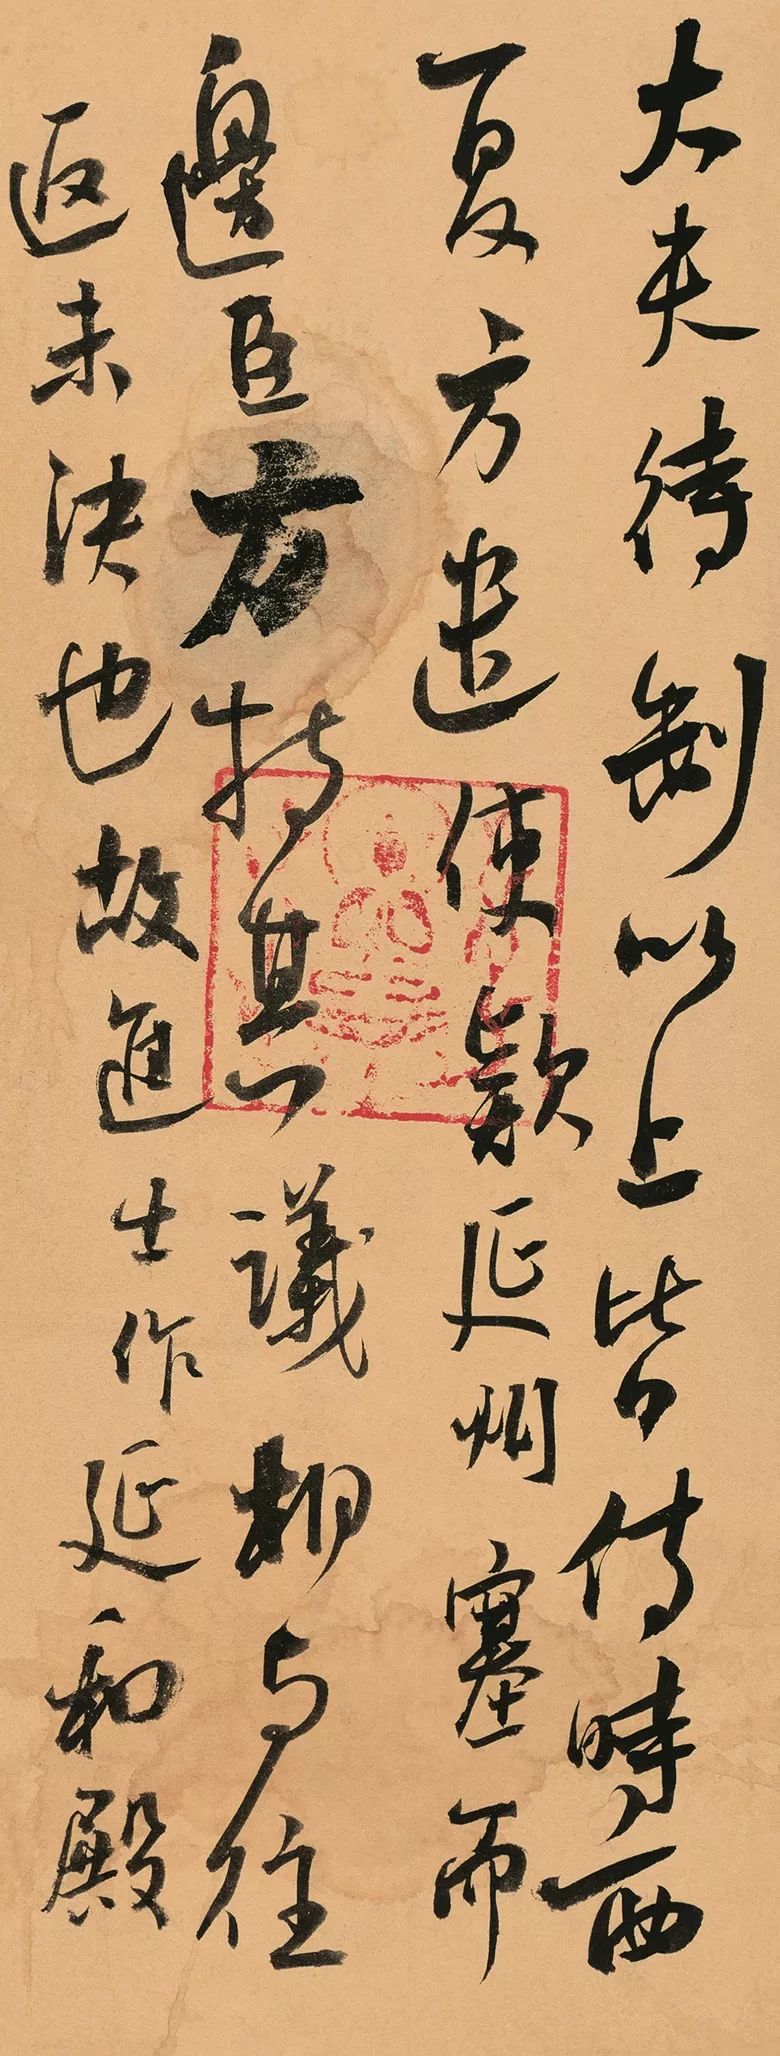 大夫待制以上皆侍時西
夏方遣使欵延州塞而
邊臣方持其議相与往
返未決也故進士作延和殿